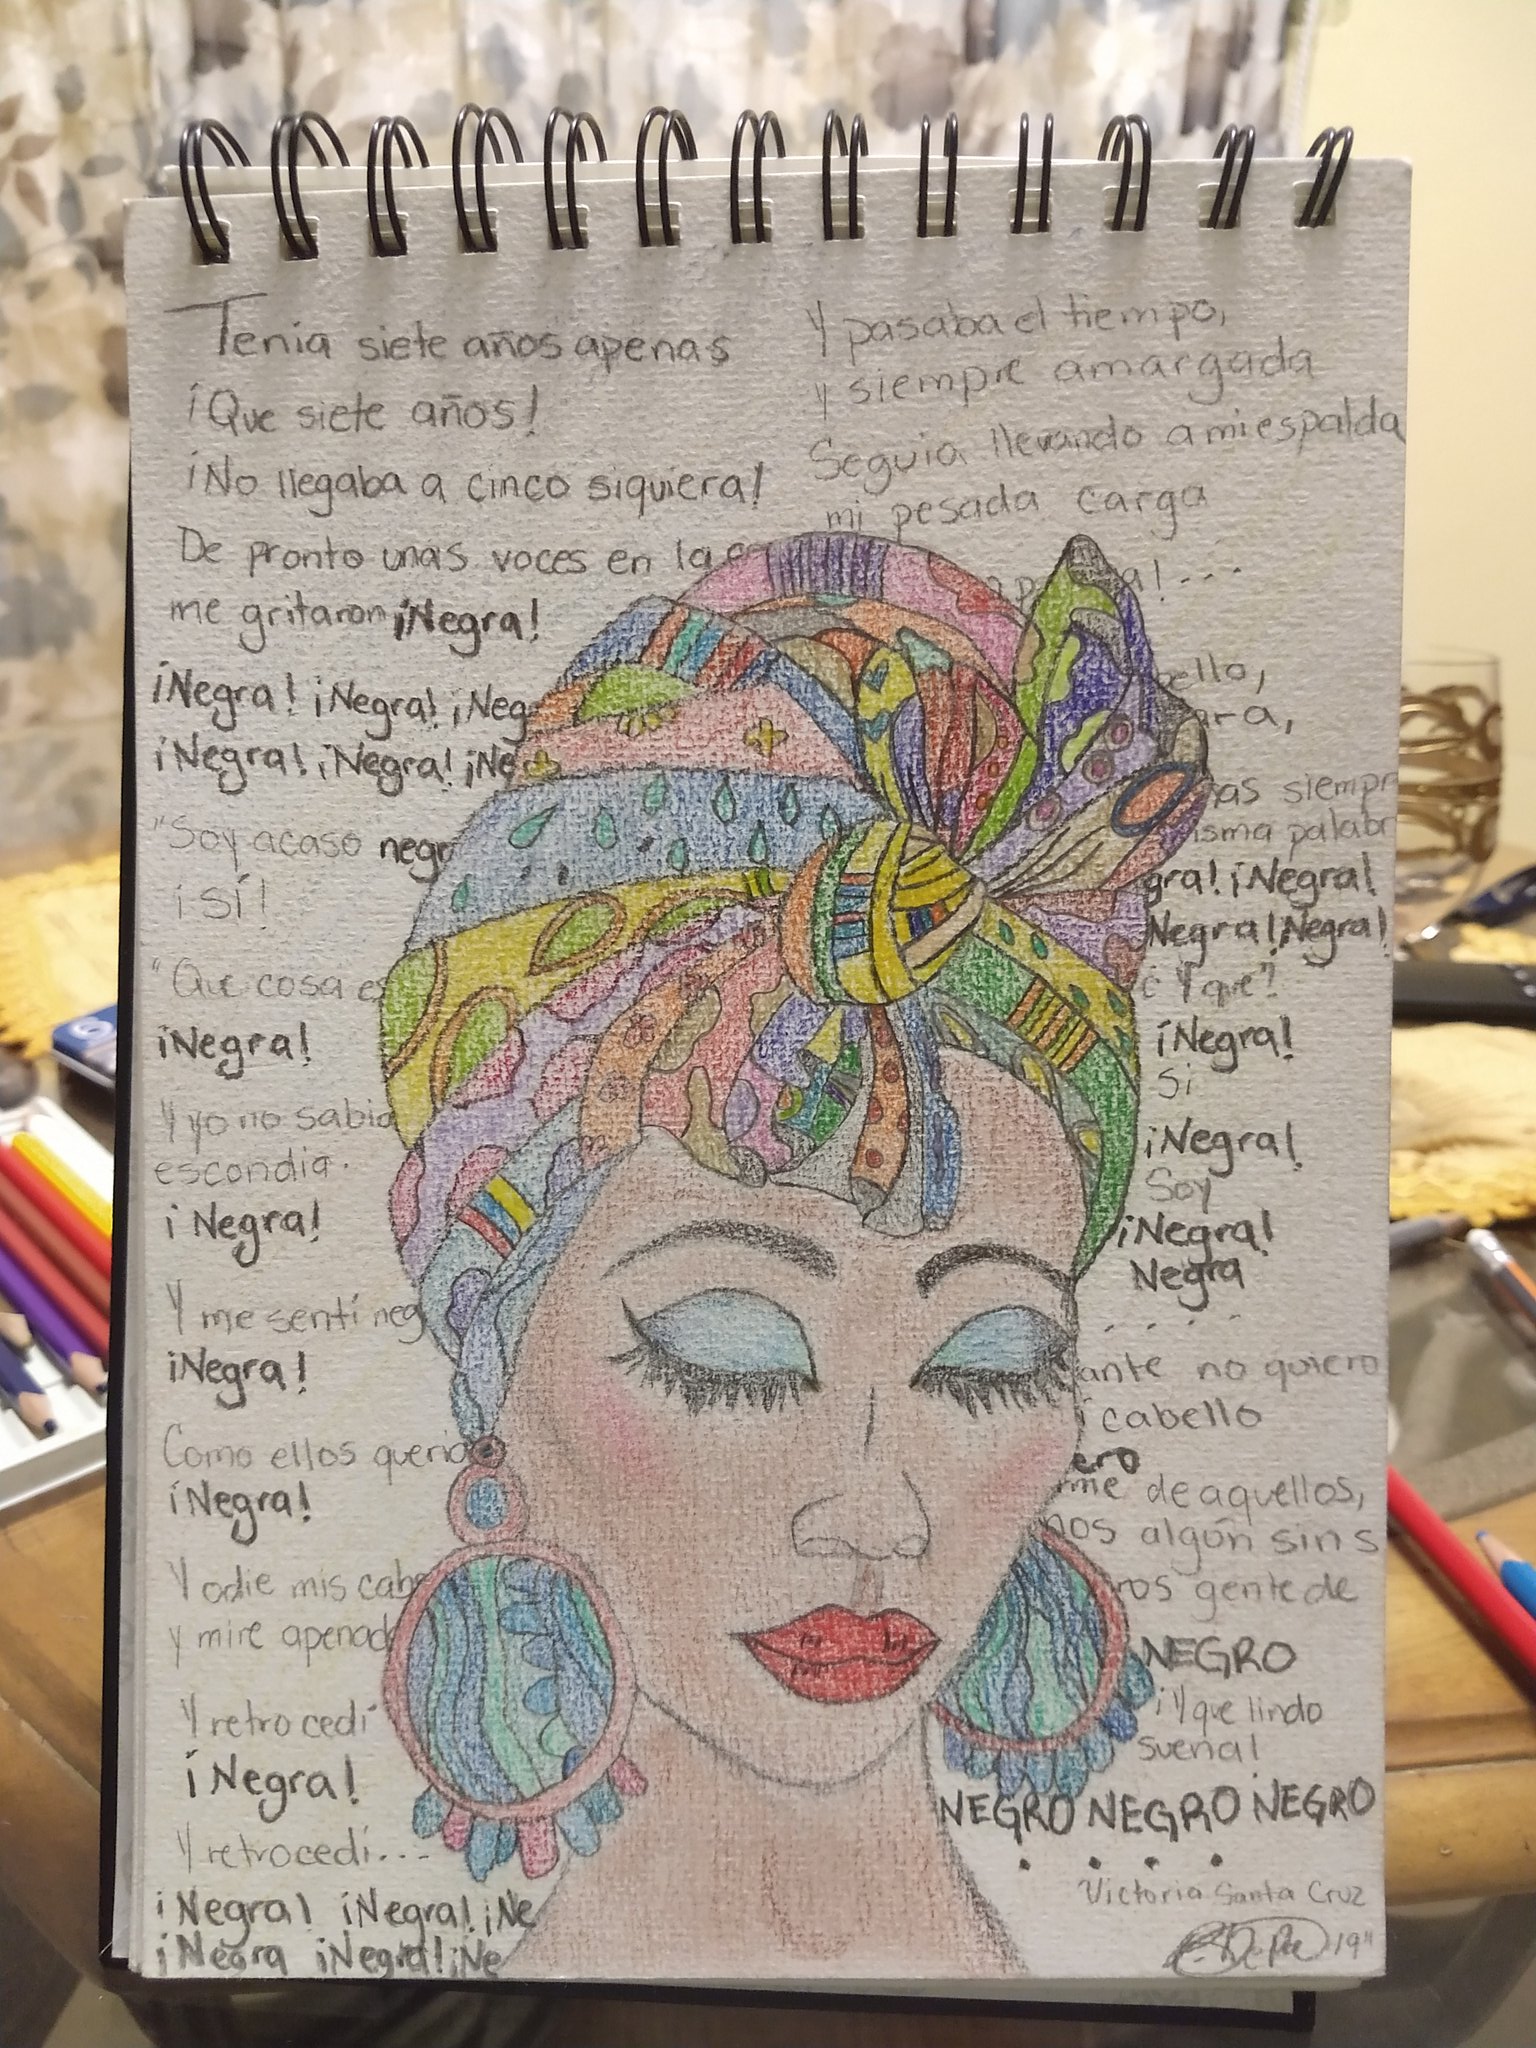 Tenia siete años apenas
¡Que siete años!
¡No llegaba a cinco siquiera!
De pronto unas voces en la
me gritaron ¡Negra!
¡Negra! ¡Negra! ¡Neg
¡Negra! ¡Negra! ¡Ne
"Soy acaso negr
¡SÍ!
"Que cosa es
¡Negra!
Y yo no sabia
escondia.
¡Negra!
Y me sentí neg
¡Negra!
Como ellos queria
¡Negra!
Y odie mis cabe
y mire apenad
Y retrocedí
¡Negra!
Y retrocedí...
¡Negra! ¡Negra! ¡Ne
¡Negra ¡Negra! ¡Ne
Y pasaba el tiempo,
y siempre amargada
Seguia llevando a mi espalda
mi pesada carga
a! ---
ello,
ara,
as siempr
isma palabr
gra! ¡Negra!
Negra! ¡Negra!
¿Y que?
¡Negra!
Si
¡Negra!
Soy
¡Negra!
Negra
. . . .
ante no quiero
i cabello
ero
rme de aquellos,
nos algún sin s
ros gente de
NEGRO
¡Y que lindo
suena!
NEGRO NEGRO NEGRO
. . . .
Victoria Santa Cruz
19"